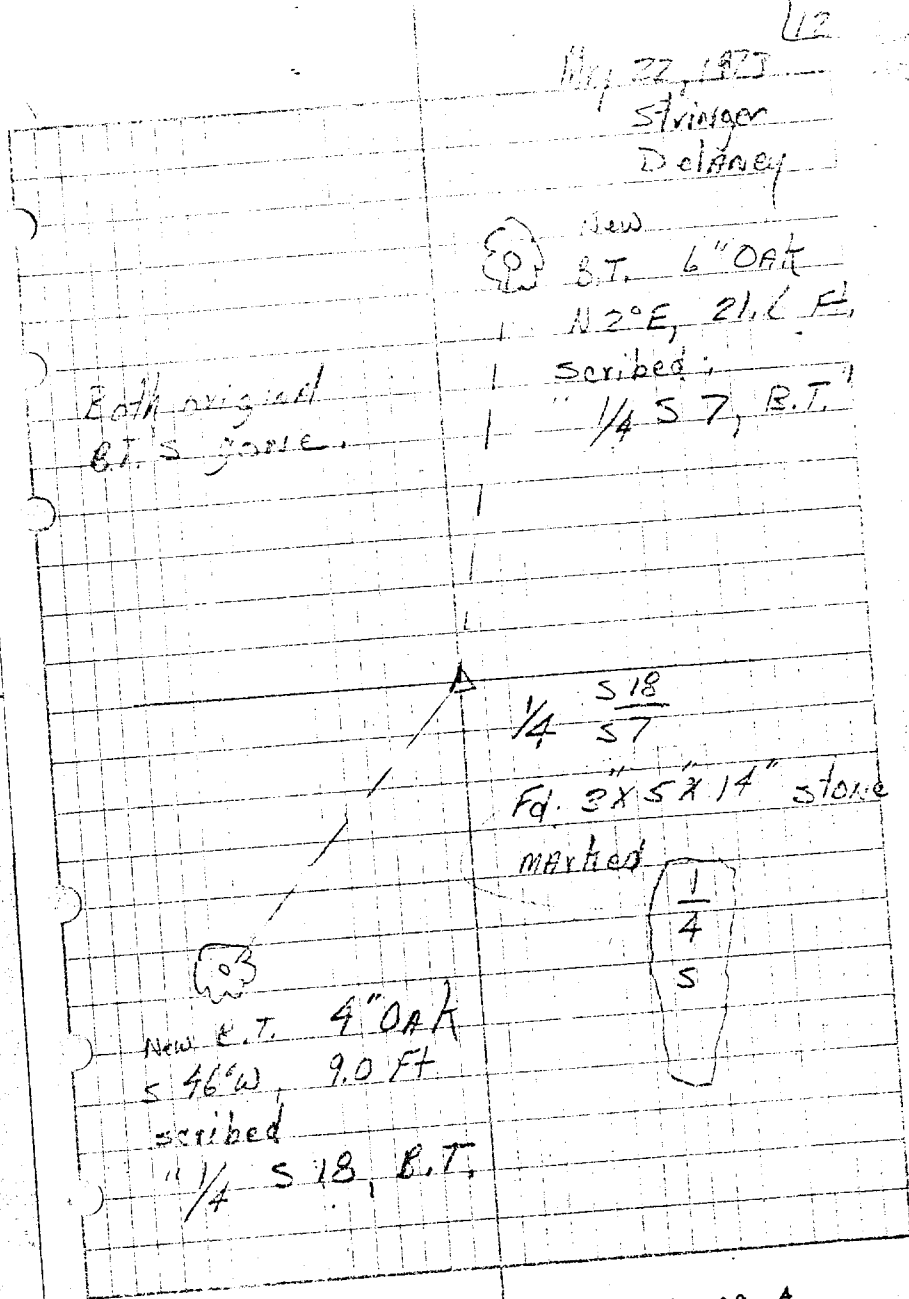 12
May 22, 1973
Stringer
Delaney
New
B.T. 6" OAK
N 2°E, 21.6 Ft.
scribed;
" 1/4 S 7, B.T."
Both original
B.T.s gone.
1/4 S 18
S 7
Fd. 3" X 5" X 14" stone
marked
1
4
S
New B.T. 4" OAK
S 46°W, 9.0 Ft
scribed
" 1/4 S 18, B.T.